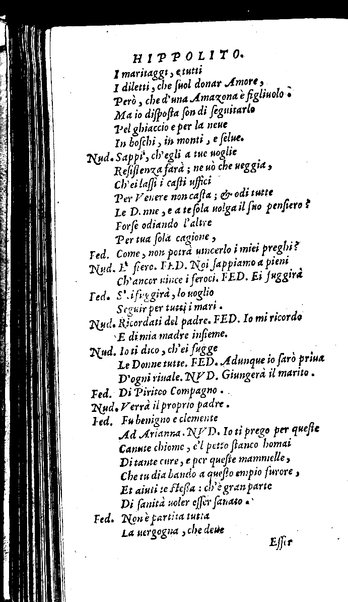 HIPPOLITO.
I maritaggi, e tutti
I diletti, che suol donar Amore,
Però, che d'una Amazona è figliuolo?
Ma io disposta son di seguitarlo
Pel ghiaccio e per la neue
In boschi, in monti, e selue.
Nud. Sappi, ch'egli a tue uoglie
Resistenza farà; ne uò che ueggia,
Ch'ei lassi i casti uffici
Per Venere non casta; & odi tutte
Le Donne, e a te sola uolga il suo pensiero?
Forse odiando l'altre
Per tua sola cagione,
Fed. Come, non potrà uincerlo i miei preghi?
Nud. E' fiero. FED. Noi sappiamo a pieni
Ch'ancor uince i feroci. FED. Ei fuggirà
Fed. S'ei fuggirà, lo uoglio
Seguir per tutti i mari.
Nud. Ricordati del padre. FED. Io mi ricordo
E di mia madre insieme.
Nud. Io ti dico, ch'ei fugge
Le Donne tutte. FED. Adunque io sarò priua
D'ogni riuale. NVD. Giungerà il marito.
Fed. Di Piritoo Compagno.
Nud. Verrà il proprio padre.
Fed. Fu benigno e clemente
Ad Arianna. NVD. Io ti prego per queste
Canute chiome, e'l petto stanco homai
Di tante cure, e per queste mammelle,
Che tu dia bando a questo empio furore,
Et aiuti te stessa: ch'è gran parte
Di sanità uoler esser sanato.
Fed. Non è partita tutta
La uergogna, che deue
Esser